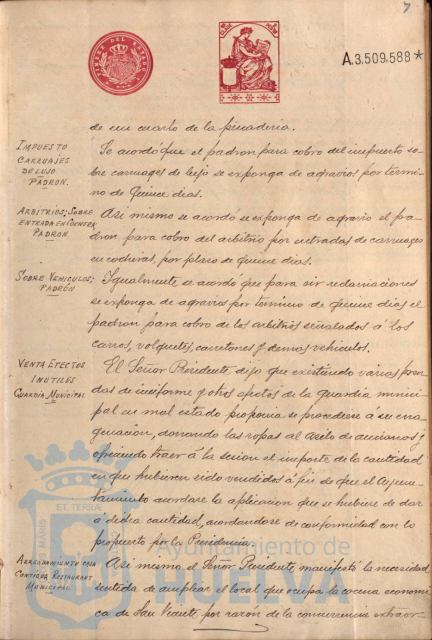 7
TIMBRE DEL ESTADO
A.3.509.588*
de un cuarto de la picadería.
IMPUESTO
CARRUAJES
DE LUJO
PADRON.
Se acordó que el padron para cobro del impuesto so-
bre carruages de lujo se exponga de agravios por térmi-
no de quince dias.
ARBITRIOS; SOBRE
ENTRADA EN COCHERA
PADRON.
Asi mismo se acordó se exponga de agravio el pa-
dron para cobro del arbitrio por entradas de carruages
en cocheras, por plazo de quince dias.
SOBRE VEHICULOS;
PADRÓN
Igualmente se acordó que para oir reclamaciones
se exponga de agravios por termino de quince dias el
padrón para cobro de los arbitrios señalados á los
carros, volquetes, carretones y demas vehiculos.
VENTA EFECTOS
INUTILES
GUARDIA MUNICIPAL
El Señor Presidente dijo que existiendo varias pren-
das de uniforme y otros efectos de la guardia munici-
pal en mal estado proponia se procediese á su ena-
genación, donando las ropas al Asilo de ancianos y
ofreciendo traer á la sesion el importe de la cantidad
en que hubieren sido vendidos á fin de que el Ayun-
tamiento acordase la aplicacion que se hubiere de dar
á dicha cantidad, acordandose de conformidad con lo
propuesto por la Presidencia.
ARRENDAMIENTO CASA
CONTIGUA RESTAURANT
MUNICIPAL
Asi mismo el Señor Presidente, manifestó la necesidad
sentida de ampliar el local que ocupa la cocina economi-
ca de San Vicente, por razón de la concurrencia extraor-
Ayuntamiento de
HUELVA